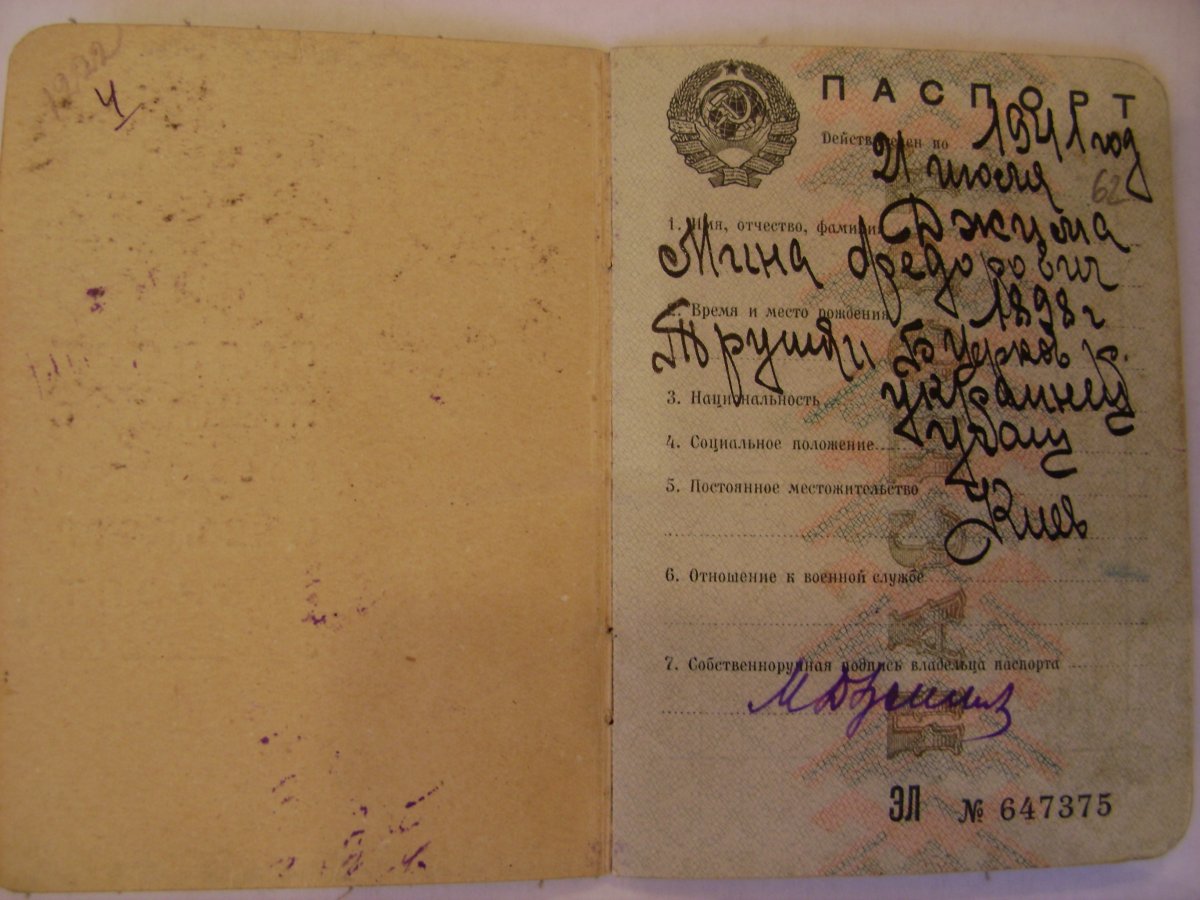 1222
4
ПАСПОРТ
Действителен по 1941 год
21 июля
62
1. Имя, отчество, фамилия Джума
Мина Федорович
2. Время и место рождения 1898 г
Б
3. Национальность украинец
4. Социальное положение
5. Постоянное местожительство
Киев
6. Отношение к военной службе
7. Собственноручная подпись владельца паспорта
ПАСПОРТ
ЭЛ № 647375